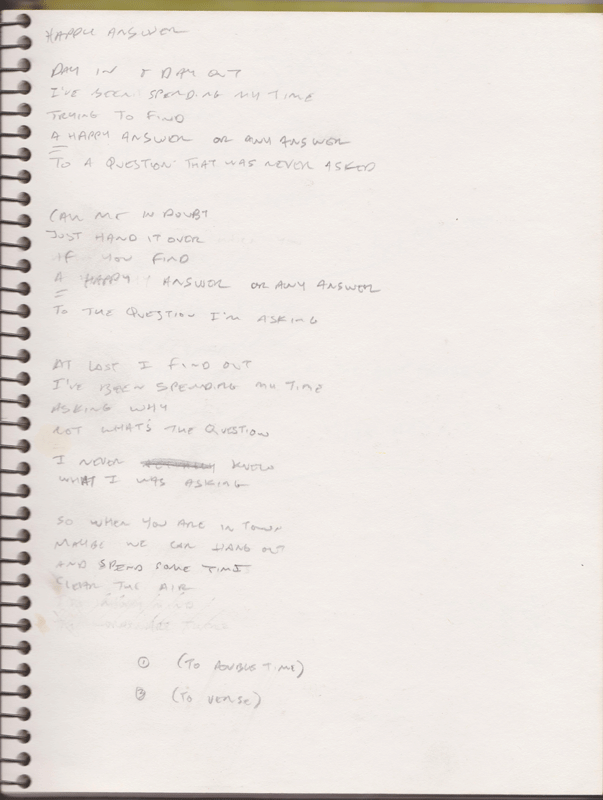 HAPPY ANSWER
DAY IN & DAY OUT
I'VE BEEN SPENDING MY TIME
TRYING TO FIND
A HAPPY ANSWER OR ANY ANSWER
TO A QUESTION THAT WAS NEVER ASKED
CALL ME IN DOUBT
JUST HAND IT OVER
IF YOU FIND
A HAPPY ANSWER OR ANY ANSWER
TO THE QUESTION I'M ASKING
AT LAST I FIND OUT
I'VE BEEN SPENDING MY TIME
ASKING WHY
NOT WHAT'S THE QUESTION
I NEVER KNEW
WHAT I WAS ASKING
SO WHEN YOU ARE IN TOWN
MAYBE WE CAN HANG OUT
AND SPEND SOME TIME
CLEAR THE AIR
① (TO DOUBLE TIME)
② (TO VERSE)